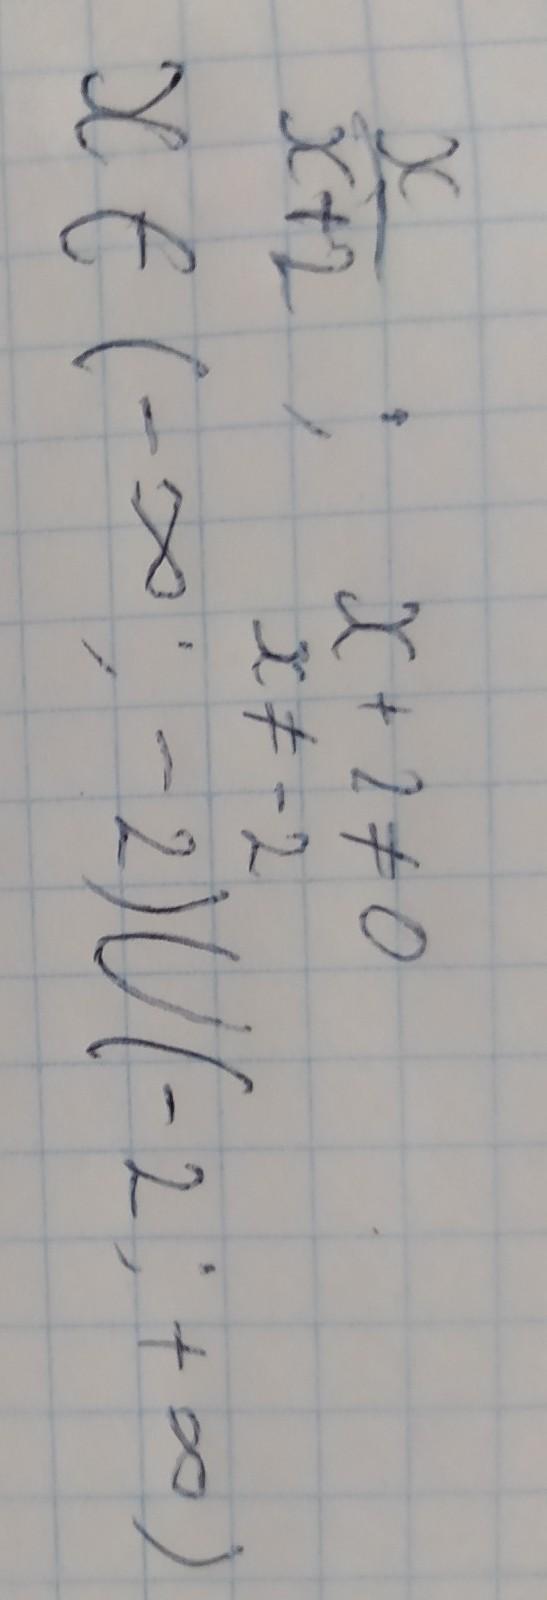 x/(x+2) ; x + 2 ≠ 0
x ≠ -2
x ∈ (-∞; -2)∪(-2; +∞)